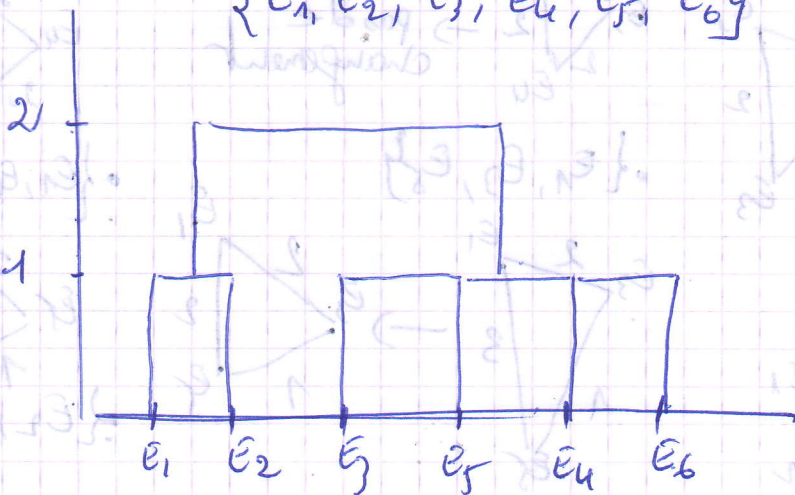 {E1, E2, E3, E4, E5, E6}
2
1
E1 E2 E3 E5 E4 E6